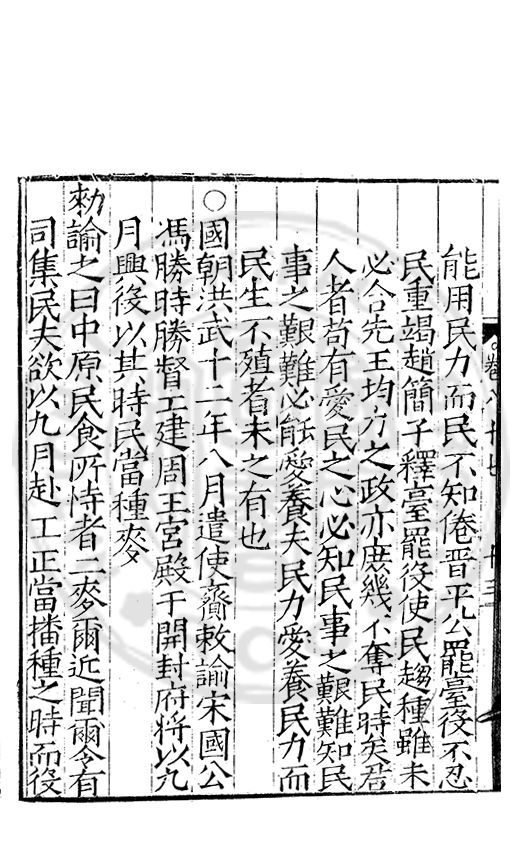 卷八十七 十三
能用民力而民不知倦晋平公罷臺役不忍
民重竭趙簡子釋臺罷役使民趨種雖未
必合先王均力之政亦庶幾不奪民時矣君
人者苟有愛民之心必知民事之艱難知民
事之艱難必能愛養夫民力愛養民力而
民生不殖者未之有也
○國朝洪武十二年八月遣使齎敕諭宋國公
馮勝時勝督工建周王宮殿于開封府將以九
月興役以其時民當種麥
勑諭之曰中原民食所恃者二麥爾近聞爾令有
司集民夫欲以九月赴工正當播種之時而役